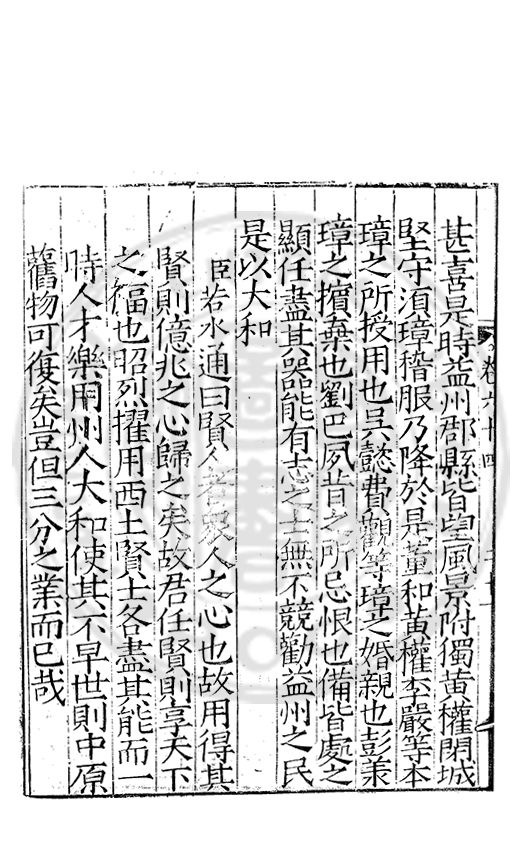 甚喜是時益州郡縣皆望風景附獨黃權閉城
堅守須璋稽服乃降於是董和黃權李嚴等本
璋之所授用也吳懿費觀等璋之婚親也彭羕
璋之擯棄也劉巴夙昔之所忌恨也備皆處之
顯任盡其器能有志之士無不競勸益州之民
是以大和
臣若水通曰賢人者衆人之心也故用得其
賢則億兆之心歸之矣故君任賢則享天下
之福也昭烈擢用西土賢士各盡其能而一
時人才樂用州人大和使其不早世則中原
舊物可復矣豈但三分之業而已哉
卷六十四